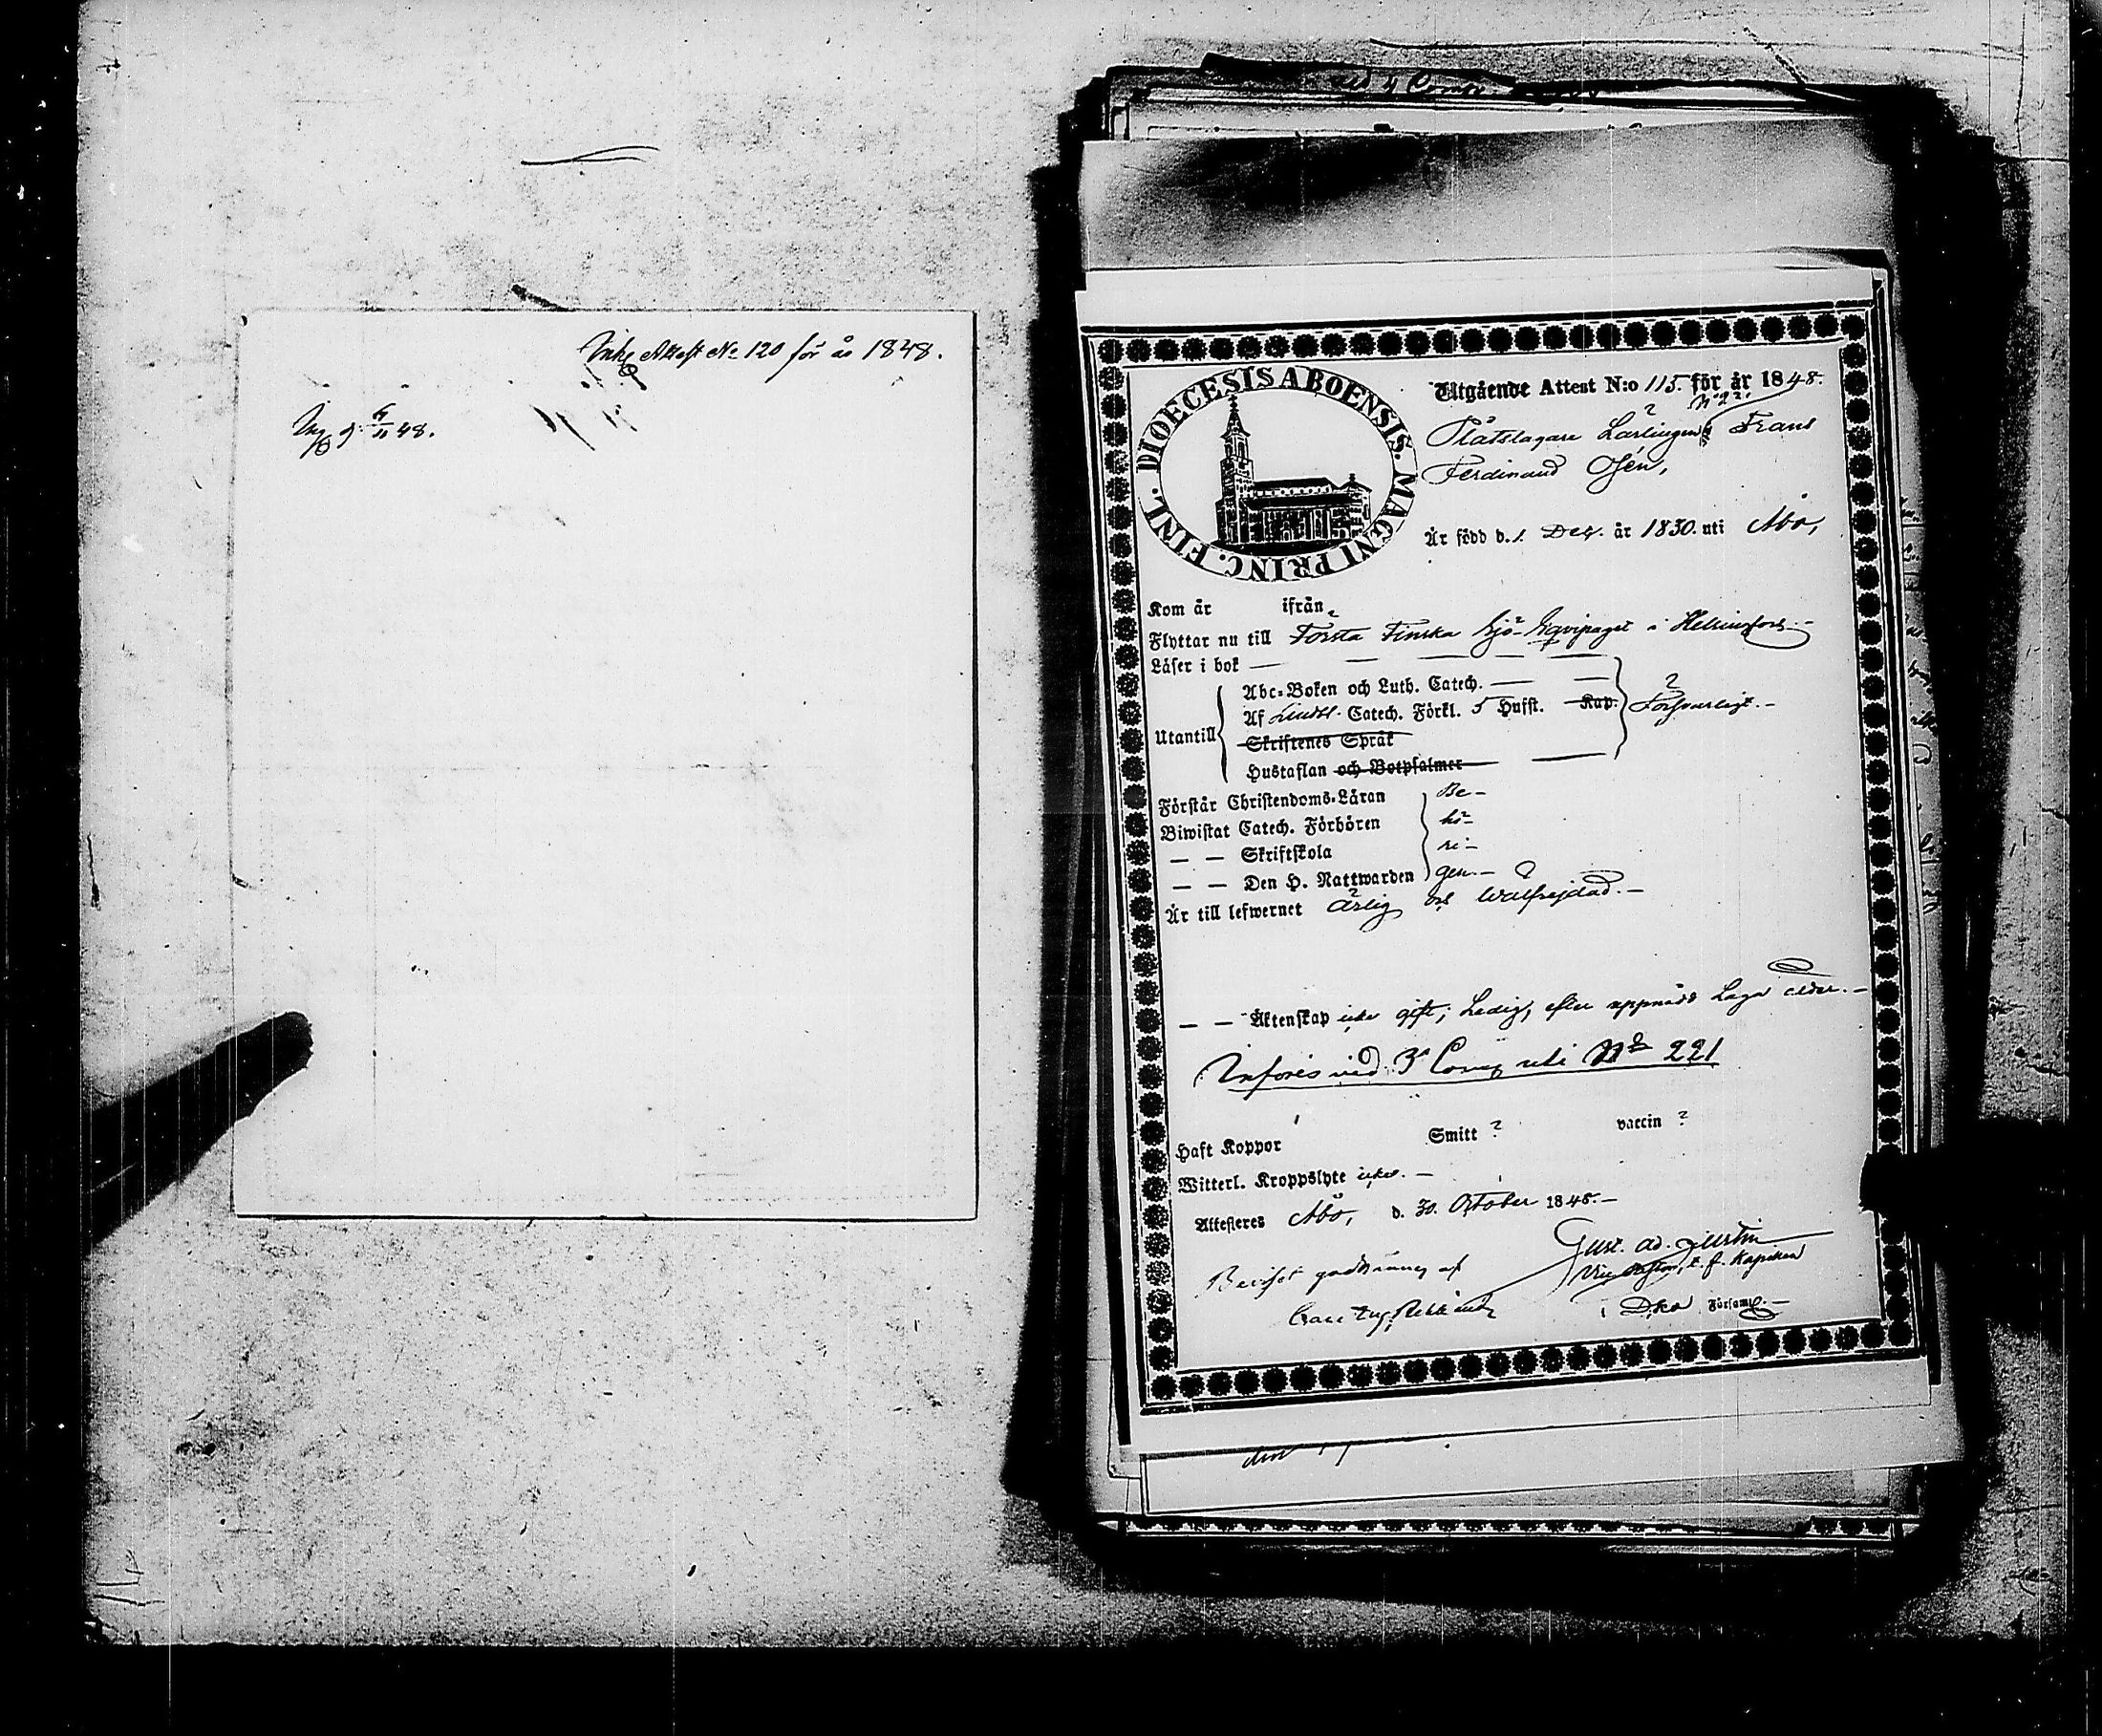 Ink. Attest No 120 för år 1848.
Ing. d. 4/11 48.
DIOECESIS ABOENSIS. MAGNI PRINC. FINL.
Utgående Attest N:o 115. för år 1848.
Plåtslagare Lärlingen Frans
Ferdinand Osén,
Är född d. 1. Dec. år 1830. uti Åbo,
Kom år ifrån
Flyttar nu till Första Finska Sjö-Equipaget i Helsingfors.-
Läser i bok — — — —
Abc-Boken och Luth. Catech. — —
Utantill Af Lindbl. Catech. Förkl. 5 Hufst. Kap. Försvarligt.-
Skriftenes Språk
Hustaflan och Botpsalmer
Förstår Christendoms-Läran Be-
Biwistat Catech. Förhören hö-
— — Skriftskola ri-
— — Den H. Nattwarden gen.-
Är till lefwernet Ärlig och Wälfrejdad.-
— — Äktenskap icke gift; Ledig, efter uppnådd Laga ålder.-
Införes vid 3e Comp uti No 221
Haft Koppor Smitt ? vaccin ?
Witterl. Kroppslyte icke.-
Attesteres Åbo, d. 30. October 1848.-
Gust. Ad.
Beviset godkännes af Vice Pastor, t. f. Kapellan
Carl Eug. i Dho Församl.-